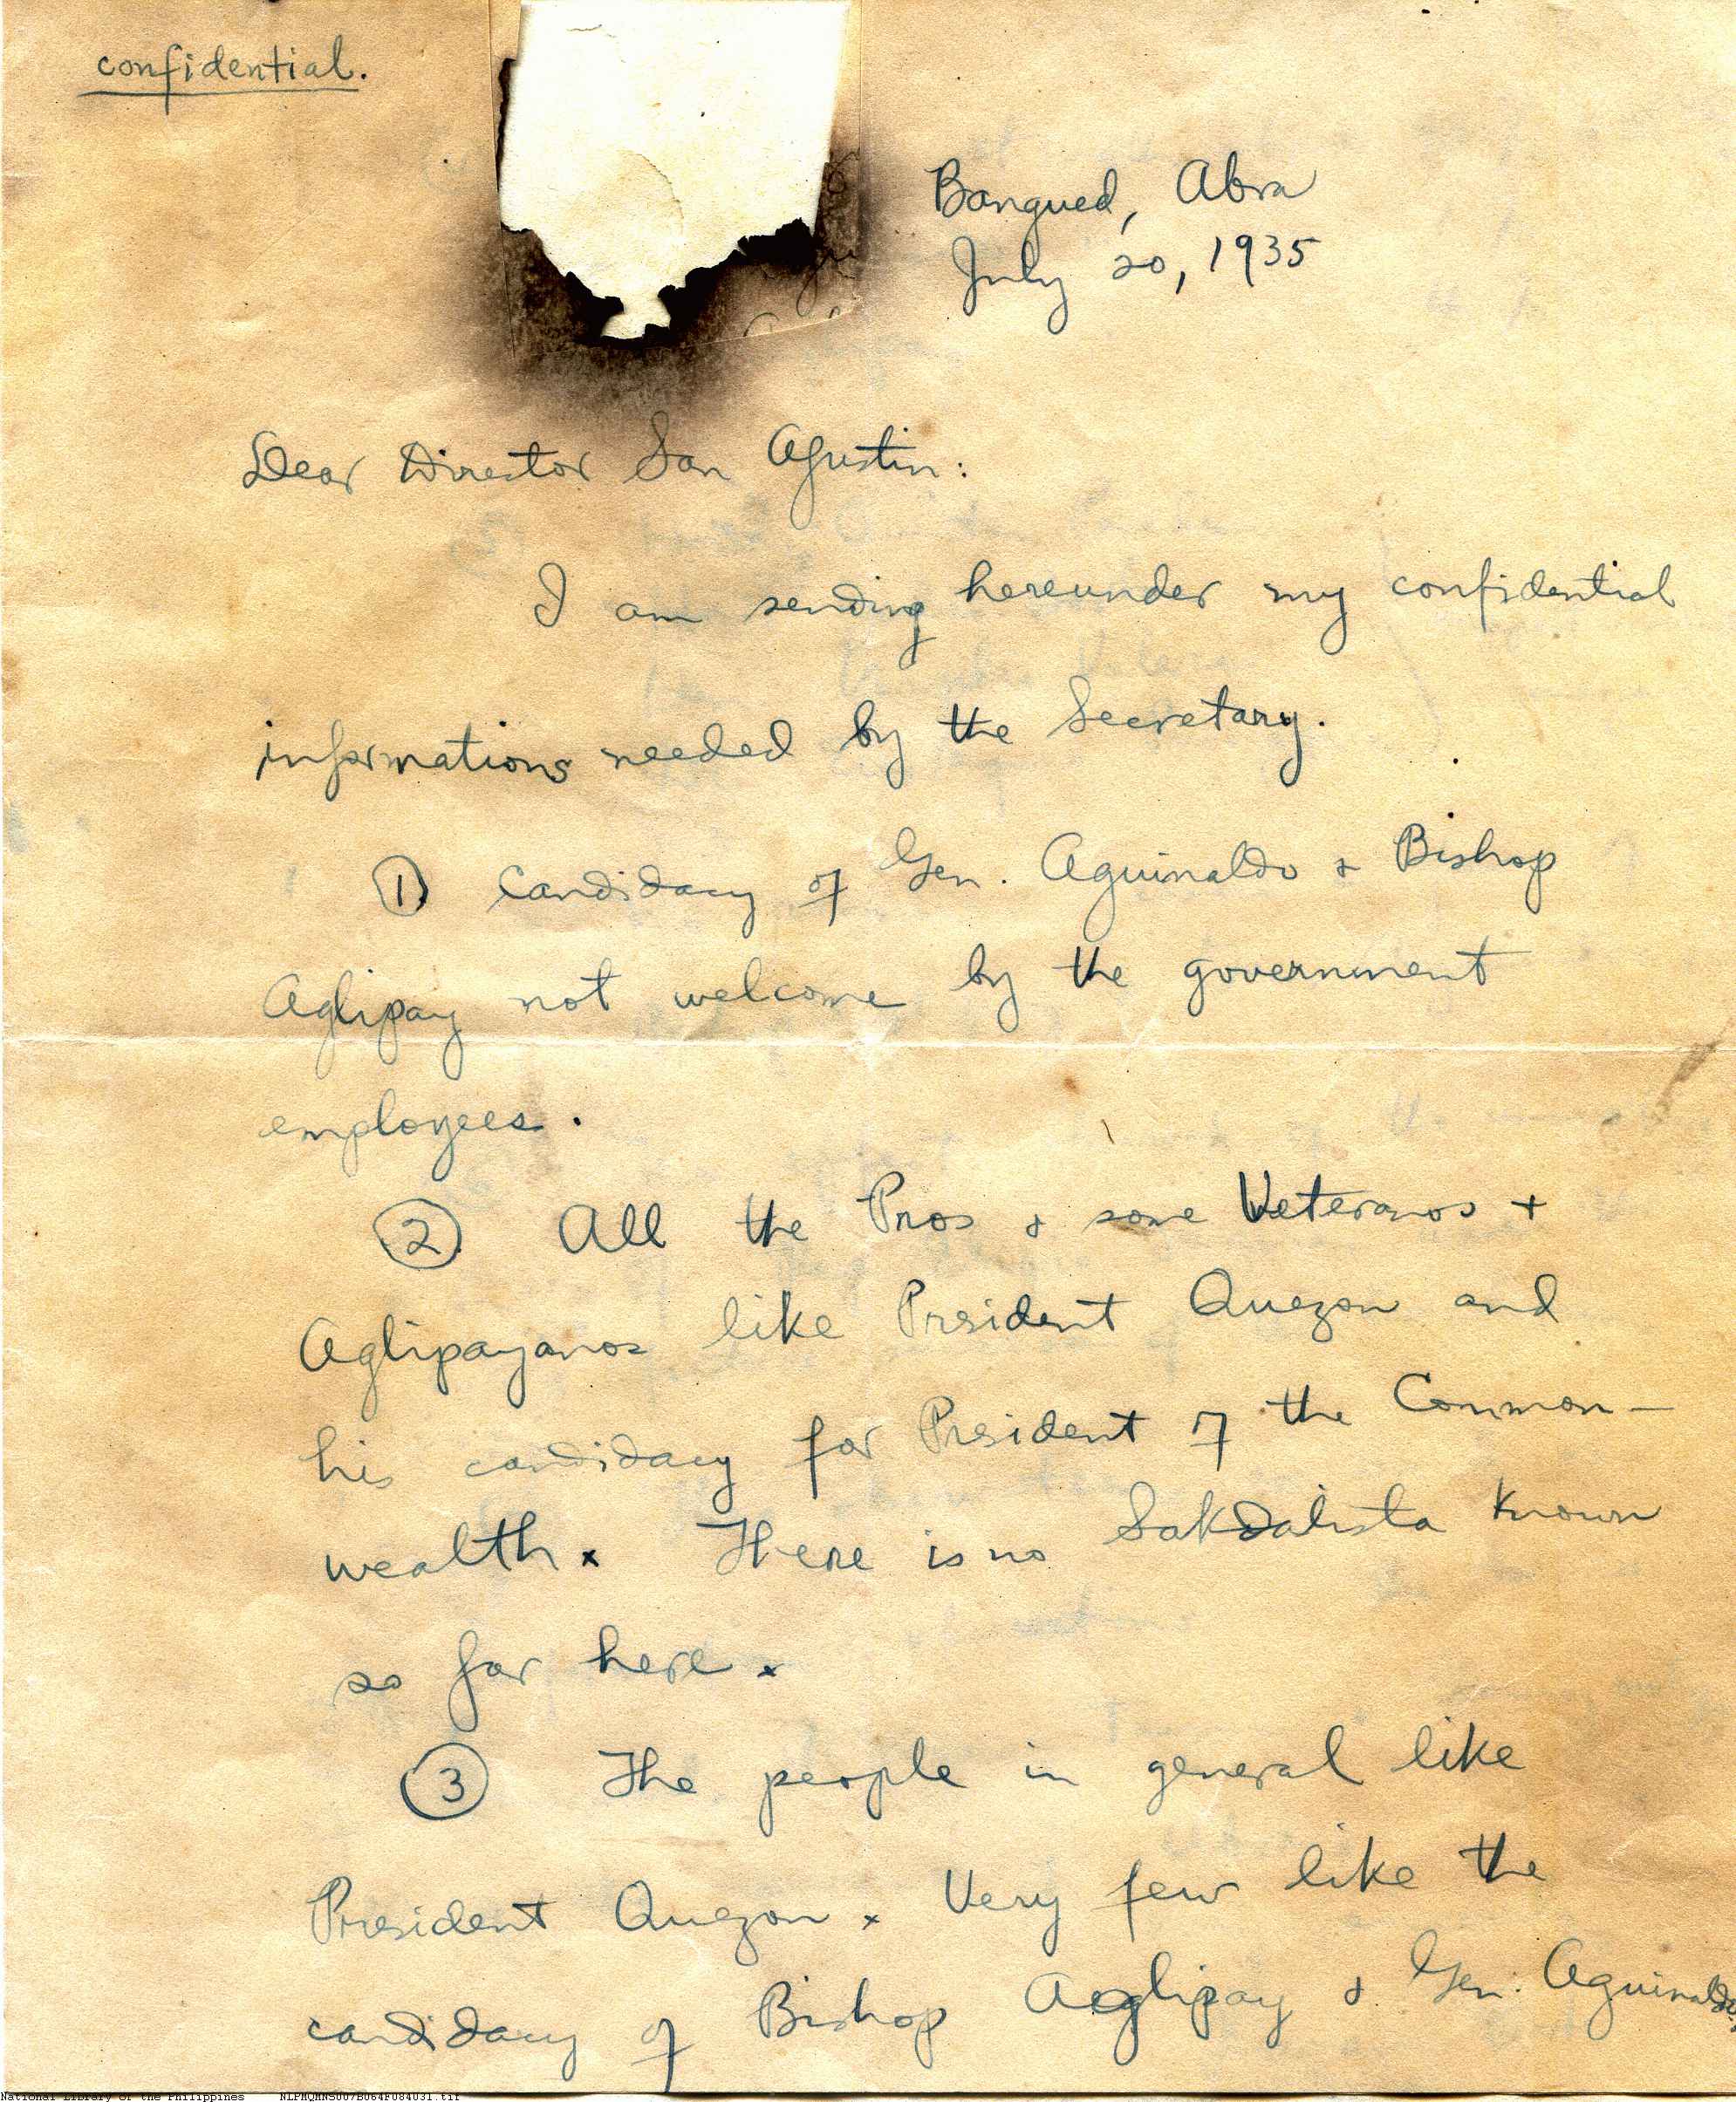 confidential.
Bangued, Abra
July 20, 1935
Dear Director San Agustin:
I am sending hereunder my confidential
informations needed by the Secretary.
① Candidacy of Gen. Aguinaldo & Bishop
Aglipay not welcome by the government
employees.
② All the Pros & some Veteranos +
Aglipayanos like President Quezon and
his candidacy for President of the Common-
wealth. There is no Sakdalista known
so far here.
③ The people in general like
President Quezon. Very few like the
candidacy of Bishop Aglipay & Gen. Aguinaldo.
National Library of the Philippines NLPMQMNS007B064F084031.tif